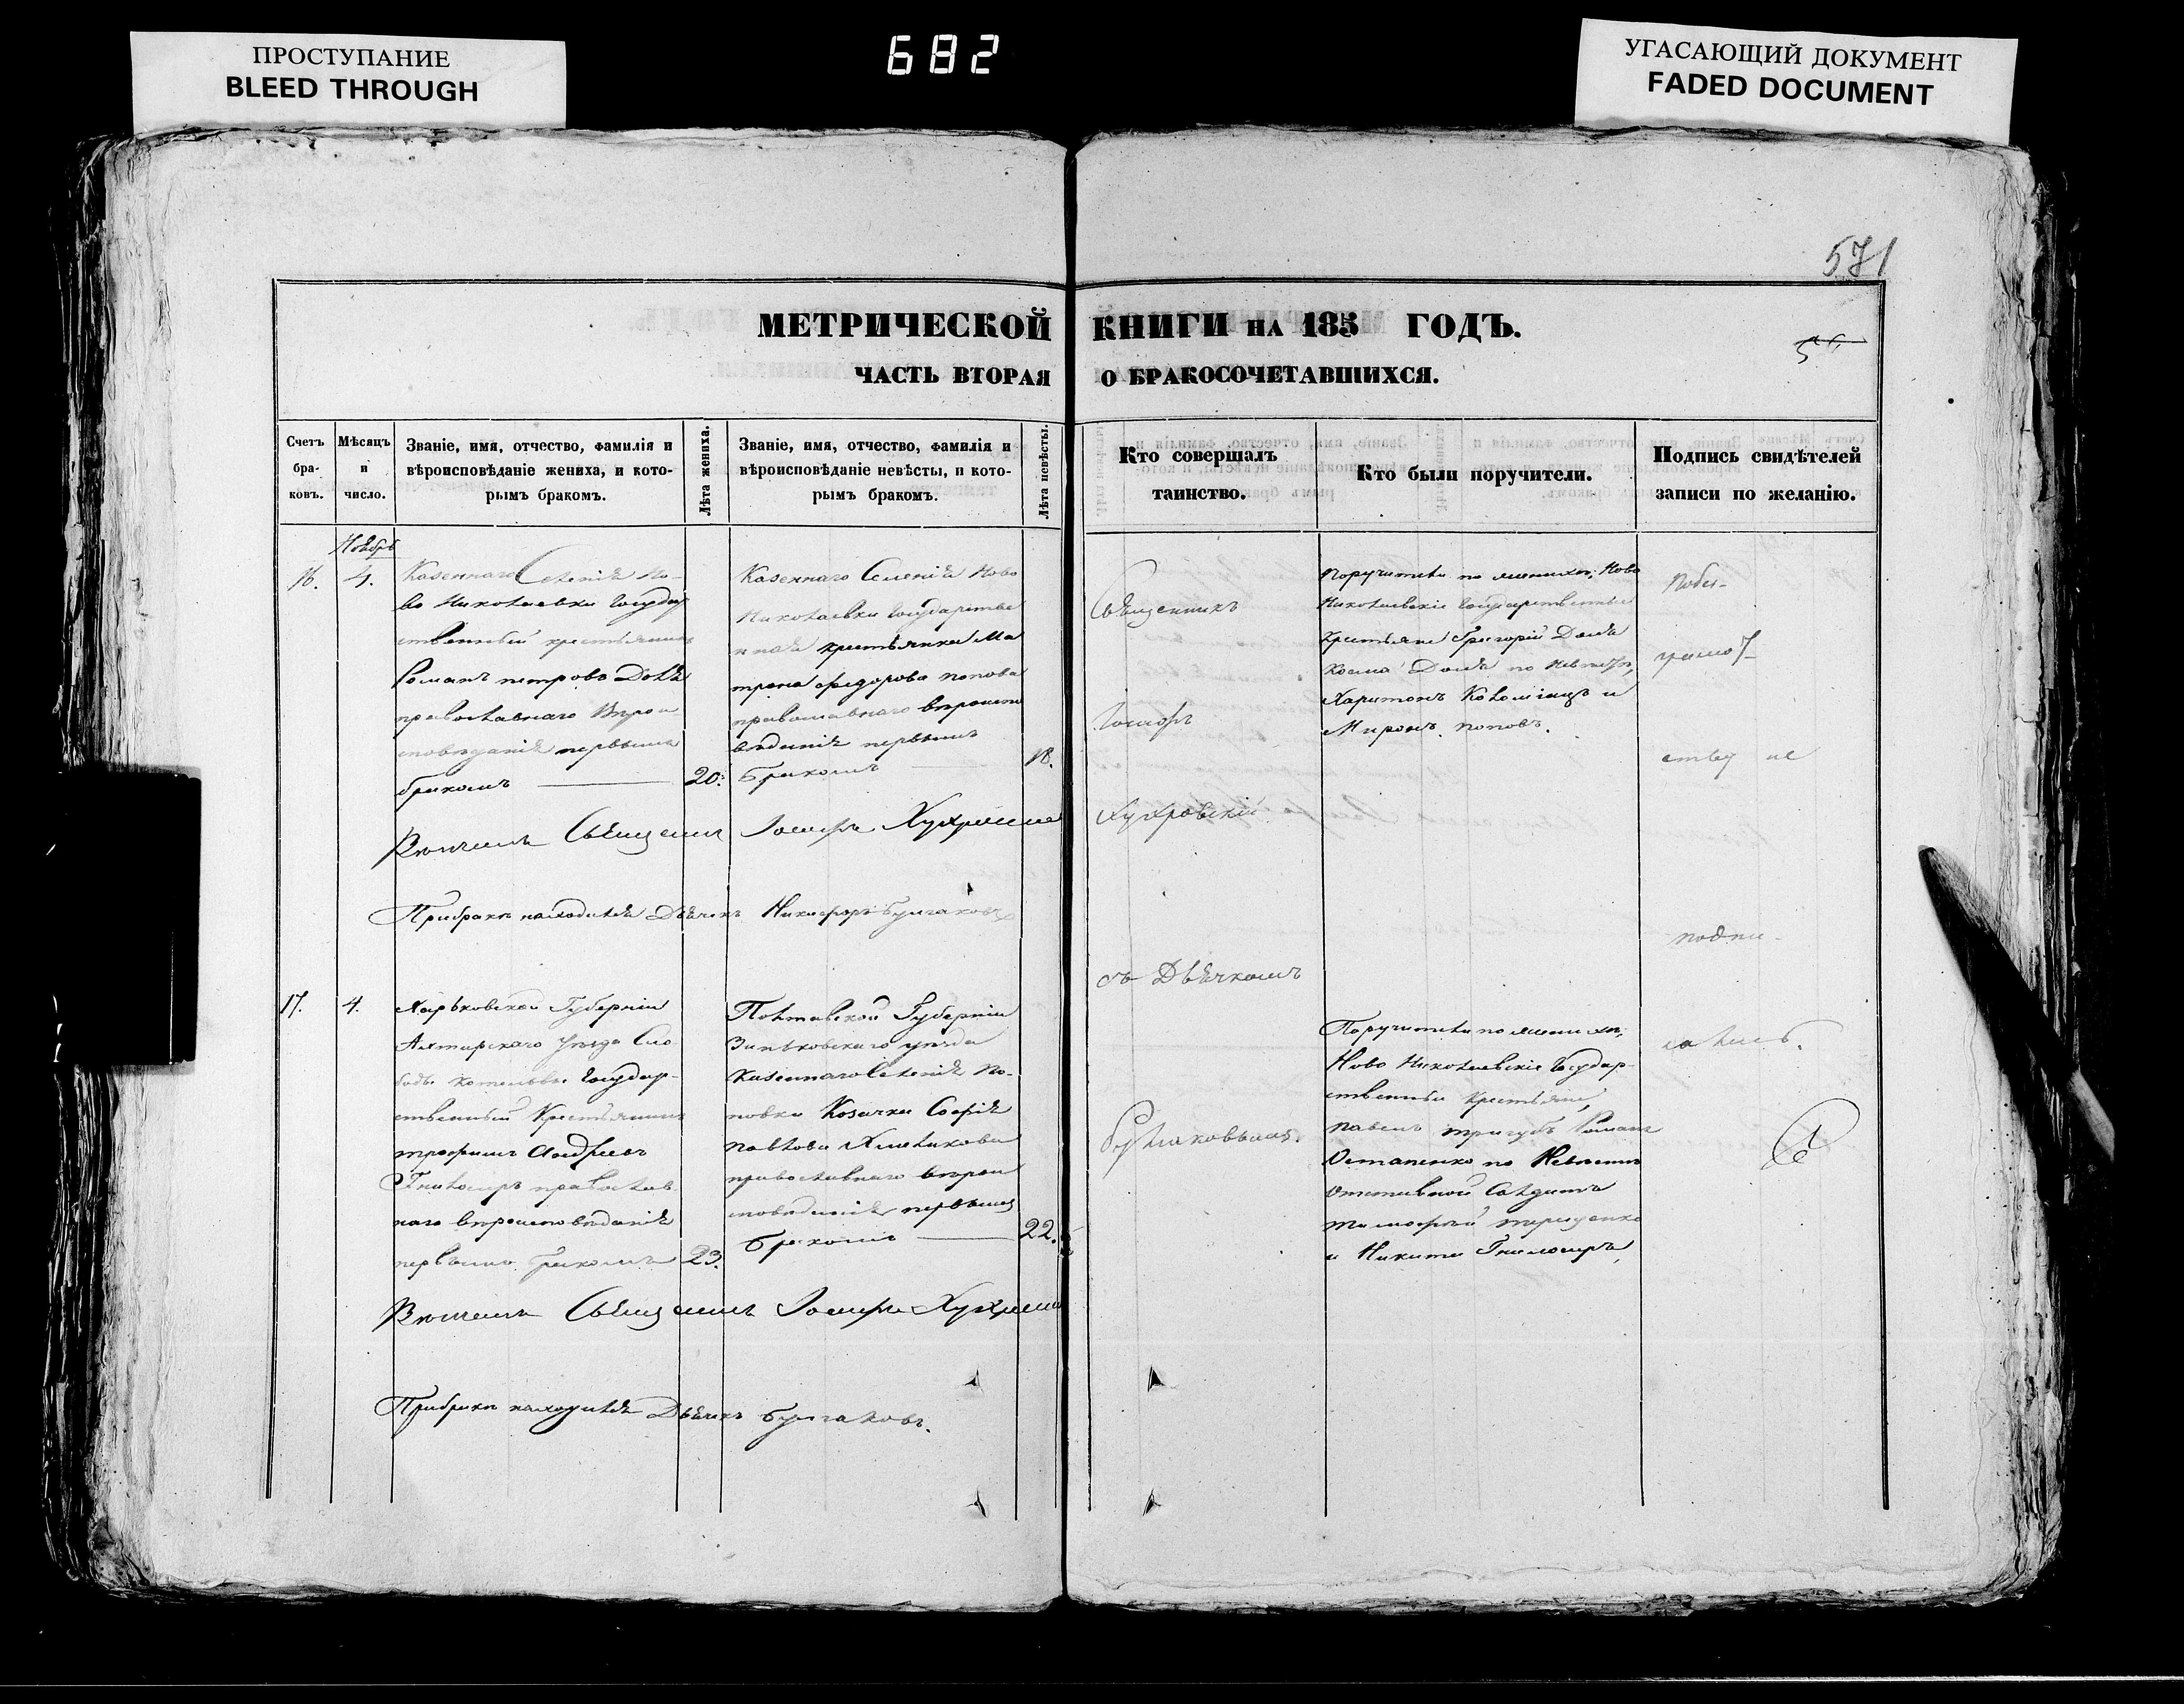 ПРОСТУПАНИЕ
BLEED THROUGH
682
УГАСАЮЩИЙ ДОКУМЕНТ
FADED DOCUMENT
571
МЕТРИЧЕСКОЙ КНИГИ НА 185 ГОДЪ.
ЧАСТЬ ВТОРАЯ О БРАКОСОЧЕТАВШИХСЯ.
Счетъ бра-ковъ.
Мѣсяцъ и число.
Званіе, имя, отчество, фамилія и
вѣроисповѣданіе жениха, и кото-
рымъ бракомъ.
Лѣта жениха.
Званіе, имя, отчество, фамилія и
вѣроисповѣданіе невѣсты, и кото-
рымъ бракомъ.
Лѣта невѣсты.
Кто совершалъ
таинство.
Кто были поручители.
Подпись свидѣтелей
записи по желанію.
Ноябрь
16. 4.
Казеннаго Селенія Но-
во Николаевки Государ
ственный крестьянинъ
Романъ петровъ
православнаго Вѣрои
сповѣданія первымъ
бракомъ 20.
Казеннаго Селенія Ново
Николаевки Государстве
нная крестьянка Ма
трона федорова попова
православнаго вѣроиспо
вѣданія первымъ
Бракомъ 18.
Священникъ
Іосифъ
Хухровскій
съ Дьячкомъ
Поручители по женихѣ; Ново
Николаевскіе Государственные
Крестьяне Григорій
по Невѣстѣ,
Харитонъ Коломіецъ и
Миронъ поповъ.
Побез-
грамот
ству не
подпи-
сались.
Священникъ Іосифъ
При бракѣ находился Дьячекъ Никифоръ Булгаковъ
17. 4.
Харьковской Губерніи
Ахтырскаго Уѣзда Сло
боды Котельвы Государ-
ственный Крестьянинъ
трофимъ Андреевъ
православ
наго вѣроисповѣданія
первымъ бракомъ 23.
Полтавской Губерніи
Зиньковскаго уѣзда
Казеннаго Селенія По-
повки Козачка Софія
Павлова
православнаго вѣрои
сповѣданія первымъ
Бракомъ 22.
Булгаковымъ.
Поручители по женихѣ;
Ново Николаевскіе Государ-
ственные Крестьяне,
Павелъ тригубъ Романъ
Остапенко по Невѣстѣ
отставной Солдатъ
тимофѣй
и Никита
Священникъ Іосифъ
При бракѣ находился Дьячекъ Булгаковъ.